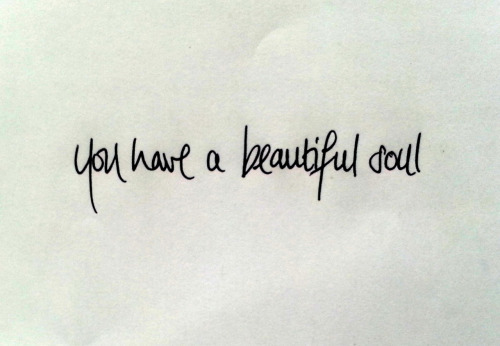 you have a beautiful soul